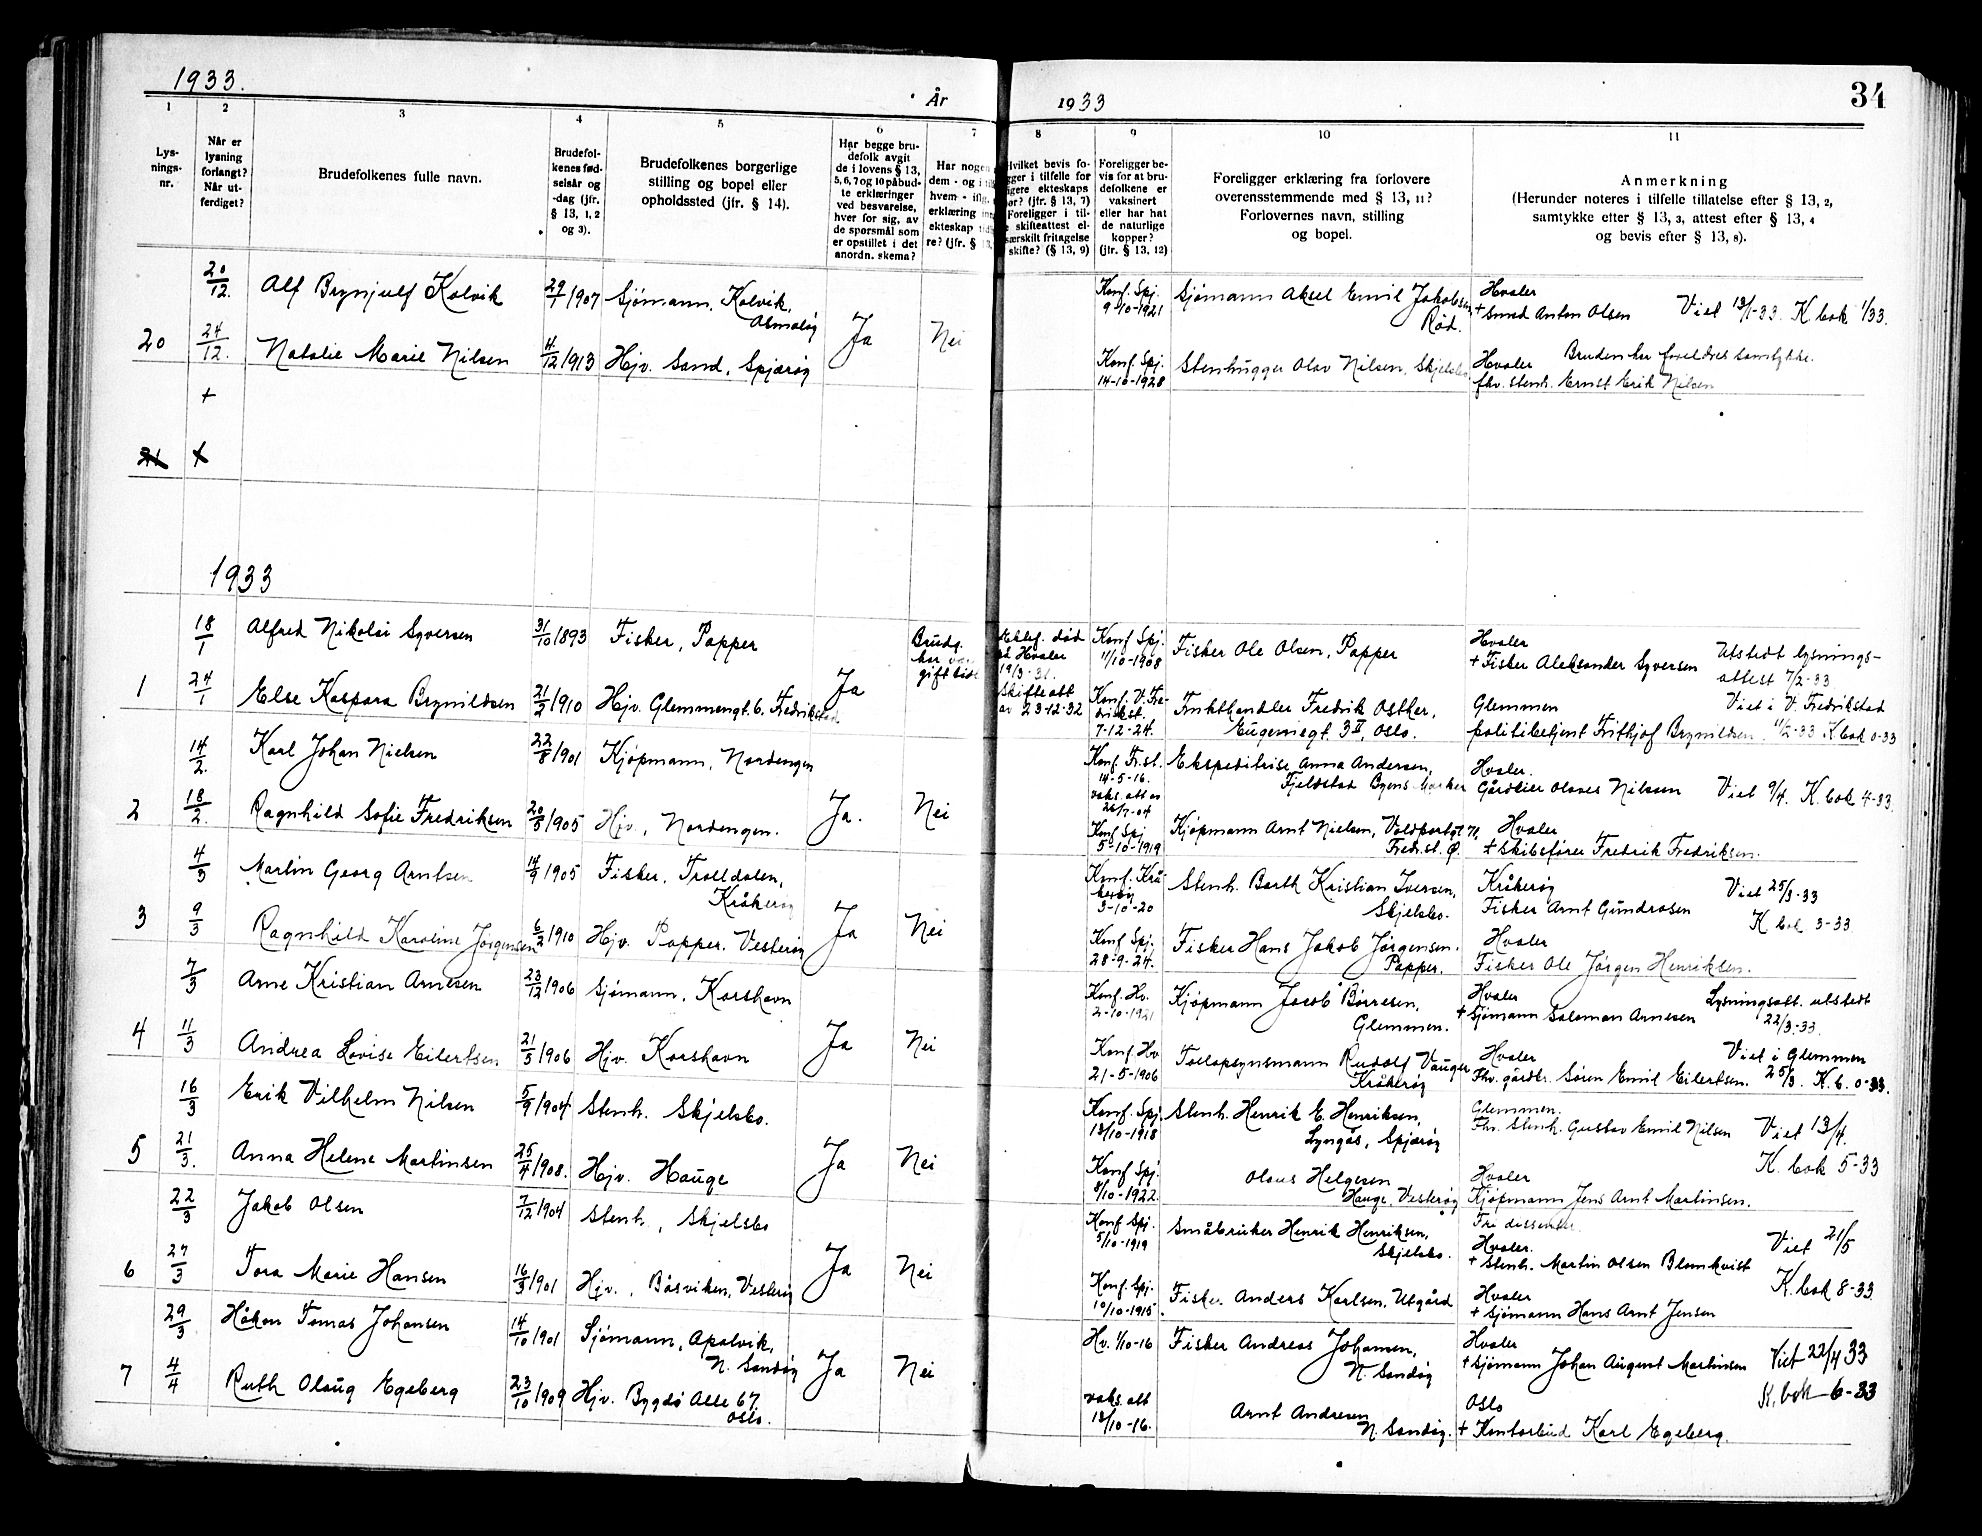 1933.
År
1933
34
1
Lys-
nings-
nr.
2
Når er
lysning
forlangt?
Når ut-
ferdiget?
3
Brudefolkenes fulle navn.
4
Brudefol-
kenes fød-
selsår og
-dag (jfr.
§ 13, 1, 2
og 3).
5
Brudefolkenes borgerlige
stilling og bopel eller
opholdssted (jfr. § 14).
6
Har begge bru-
defolk avgit
de i lovens § 13,
5, 6, 7 og 10 påbud-
te erklæringer
ved besvarelse,
hver for sig, av
de spørsmål som
er opstillet i det
anordn. skema?
7
Har nogen
dem - og i
hvem - iflg.
erklæring
ekteskap
re? (jfr. § 13,
8
Hvilket bevis fo-
gger i tilfelle for
igere ekteskaps
ør? (jfr. § 13, 7)
Foreligger i til-
e skifteattest el-
særskilt fritagelse
skifte? (§ 13, 9)
9
Foreligger be-
vis for at bru-
defolkene er
vaksinert
eller har hat
de naturlige
kopper?
(jfr. § 13, 12)
10
Foreligger erklæring fra forlovere
overensstemmende med § 13, 11?
Forlovernes navn, stilling
og bopel.
11
Anmerkning
(Herunder noteres i tilfelle tillatelse efter § 13, 2,
samtykke efter § 13, 3, attest efter § 13, 4
og bevis efter § 13, 8).
20/12. Alf Brynjulf Kolvik 29/1 1907 Sjømann, Kolvik, Konf. Spj. Sjømann Aksel Emil Jakobsen Hvaler
Asmaløy 9-10-1921 Rød. + Smed Anton Olsen Viet 13/1-33. K. bok 1/33.
20 24/12. Natalie Marie Nilsen 4/12 1913 Hjv. Sand, Spjærøy Ja Nei Konf. Spj. Stenhugger Olav Nilsen, Skjelsbo Hvaler Bruden har foreldres samtykke.
14-10-1928 fhv. stenh. Ernst Erik Nilsen
+
21 +
1933
18/1 Alfred Nikolai Syversen 31/10 1893 Fisker, Papper Brudg. Ektef. død Konf. Spj. Fisker Ole Olsen, Papper Hvaler
har på Hvaler 11/10-1908 + Fisker Aleksander Syversen Utstedt lysnings-
gift 19/3-31. attest 7/2-33
1 24/1 Else Kaspara Brynildsen 21/2 1910 Hjv. Glemmengt. 6. Fredrikstad Ja Skifteatt Konf. V. Fre- Frukthandler Fredrik Osther, Glemmen Viet i V. Fredrikstad
av 23-12-32 drikst. 7-12-24. Eugeniegt. 3 II, Oslo. politibetjent Frithjof Brynildsen 11/2-33 K bok 0-33
14/2. Karl Johan Nielsen 22/8 1901 Kjøpmann, Nordengen Konf. Fr.st. Ekspeditrise Anna Andersen, Hvaler.
14-5-16. Fjeldstad Byens Marker Gårdeier Olaves Nilssen Viet 9/4. K. bok 4-33.
vaks. att av
26/7-04
2 18/2. Ragnhild Sofie Fredriksen 20/5 1905 Hjv., Nordengen. Ja. Nei Konf Spj Kjøpmann Arnt Nielsen, Voldportgt 71, Hvaler
5-10-1919 Fredr.st. Ø. + Skibsfører Fredrik Fredriksen.
4/3 Martin Georg Arntsen 14/9 1905 Fisker, Trolldalen, Konf. Krå- Stenh. Barth Kristian Iversen, Kråkerøy Viet 25/3-33
Kråkerøy kerøy 3-10-20 Skjelsbo. Fisker Arnt Gundrosen K bok 3-33
3 9/3 Ragnhild Karoline Jørgensen 6/2 1910 Hjv. Papper, Vesterøy Ja Nei Konf. Spj. Fisker Hans Jakob Jørgensen. Hvaler
28-9-24. Papper. Fisker Ole Jørgen Henriksen.
7/3 Arne Kristian Arnesen 23/12 1906 Sjømann, Korshavn Konf. Hv. Kjøpmann Jacob Børresen, Hvaler Lysningsatt. utstedt
2-10-1921 Glemmen. + Sjømann Salomon Arnesen 22/3-33.
4 11/3 Andrea Lovise Eilertsen. 21/5 1906 Hjv. Korshavn Ja Nei Konf. Hv Tollopsynsmann Rudolf Vauger Hvaler Viet i Glemmen
21-5-1906 Kråkerøy Fhv. gårdbr. Søren Emil Eilertsen. 25/3. K. b. 0-33.
16/3 Erik Vilhelm Nilsen 5/9 1904 Stenh. Skjelsbo. Konf. Spj Stenh. Henrik E Henriksen, Glemmen.
13/10-1918 Lyngås, Spjærøy Fhv. Stenh. Gustav Emil Nilsen Viet 13/4.
5 21/3. Anna Helene Martinsen 25/4 1908. Hjv. Hauge Ja Nei Konf Spj. Olaus Helgesen Hvaler K. bok 5-33
8/10-1922. Hauge, Vesterøy Kjøpmann Jens Arnt Martinsen.
22/3 Jakob Olsen 7/12 1904 Stenh., Skjelsbo Konf Spj. Småbruker Henrik Henriksen, Fri dissenter
5/10-1919 Skjelsbo. Hvaler. Viet 21/5
+ Stenh. Martin Olsen Blomkvist
6 27/3 Tora Marie Hansen 16/3 1901 Hjv., Båsviken, Vesterøy Ja Nei Konf. Spj. Fisker Anders Karlsen, Utgård Hvaler K. bok 8-33
10/10-1915 + Sjømann Hans Arnt Jensen
29/3 Håkon Tomas Johansen 14/10 1901 Sjømann, Apalvik, Hv. 1/10-16 Fisker Andreas Johansen, Hvaler
N. Sandøy N. Sandøy + Sjømann Johan August Martinsen Viet 22/4 33
7 4/4 Ruth Olaug Egeberg 23/10 1909 Hjv. Bygdø Alle 67 Ja Nei vaks. att Arnt Andresen Oslo K. bok 6-33
Oslo. 13/10-16. N. Sandøy. + Kontorbud Karl Egeberg.